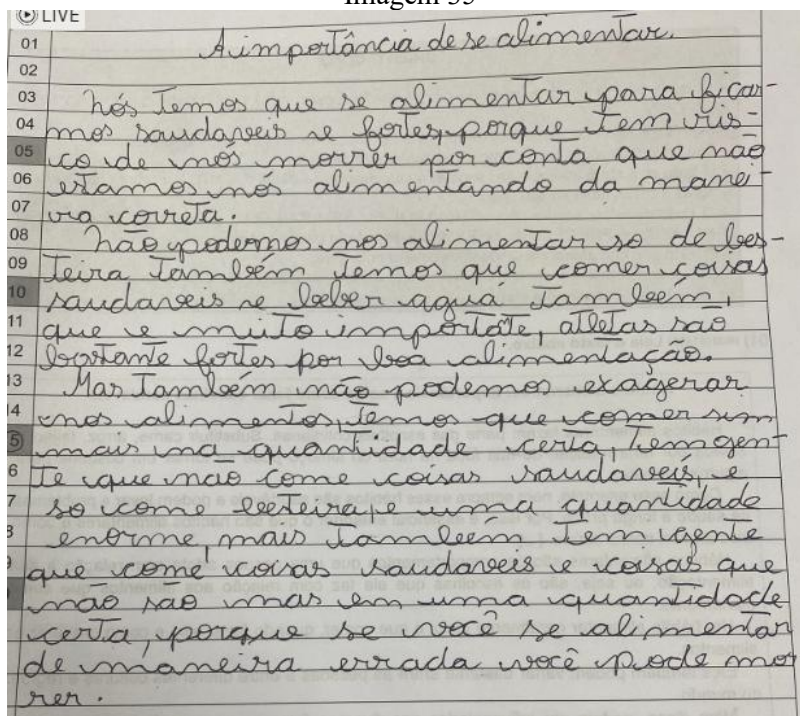 Imagem 35
LIVE
01 A importância de se alimentar.
02
03 Nós temos que se alimentar para ficar-
04 mos saudaveis e fortes, porque tem ris-
05 co de nós morrer por conta que não
06 estamos nós alimentando da manei-
07 ra correta.
08 Não podemos nos alimentar so de bes-
09 teira também temos que comer coisas
10 saudaveis e beber aguá também,
11 que e muito importãte, atletas são
12 bastante fortes por boa alimentação.
13 Mas também não podemos exagerar
14 nos alimentos, temos que comer sim
5 mais na quantidade certa, tem gen-
6 te que não come coisas saudaveis, e
7 so come besteira, e uma quantidade
8 enorme, mais também tem gente
que come coisas saudaveis e coisas que
não são mas em uma quantidade
certa, porque se você se alimentar
de maneira errada você pode mor
rer.